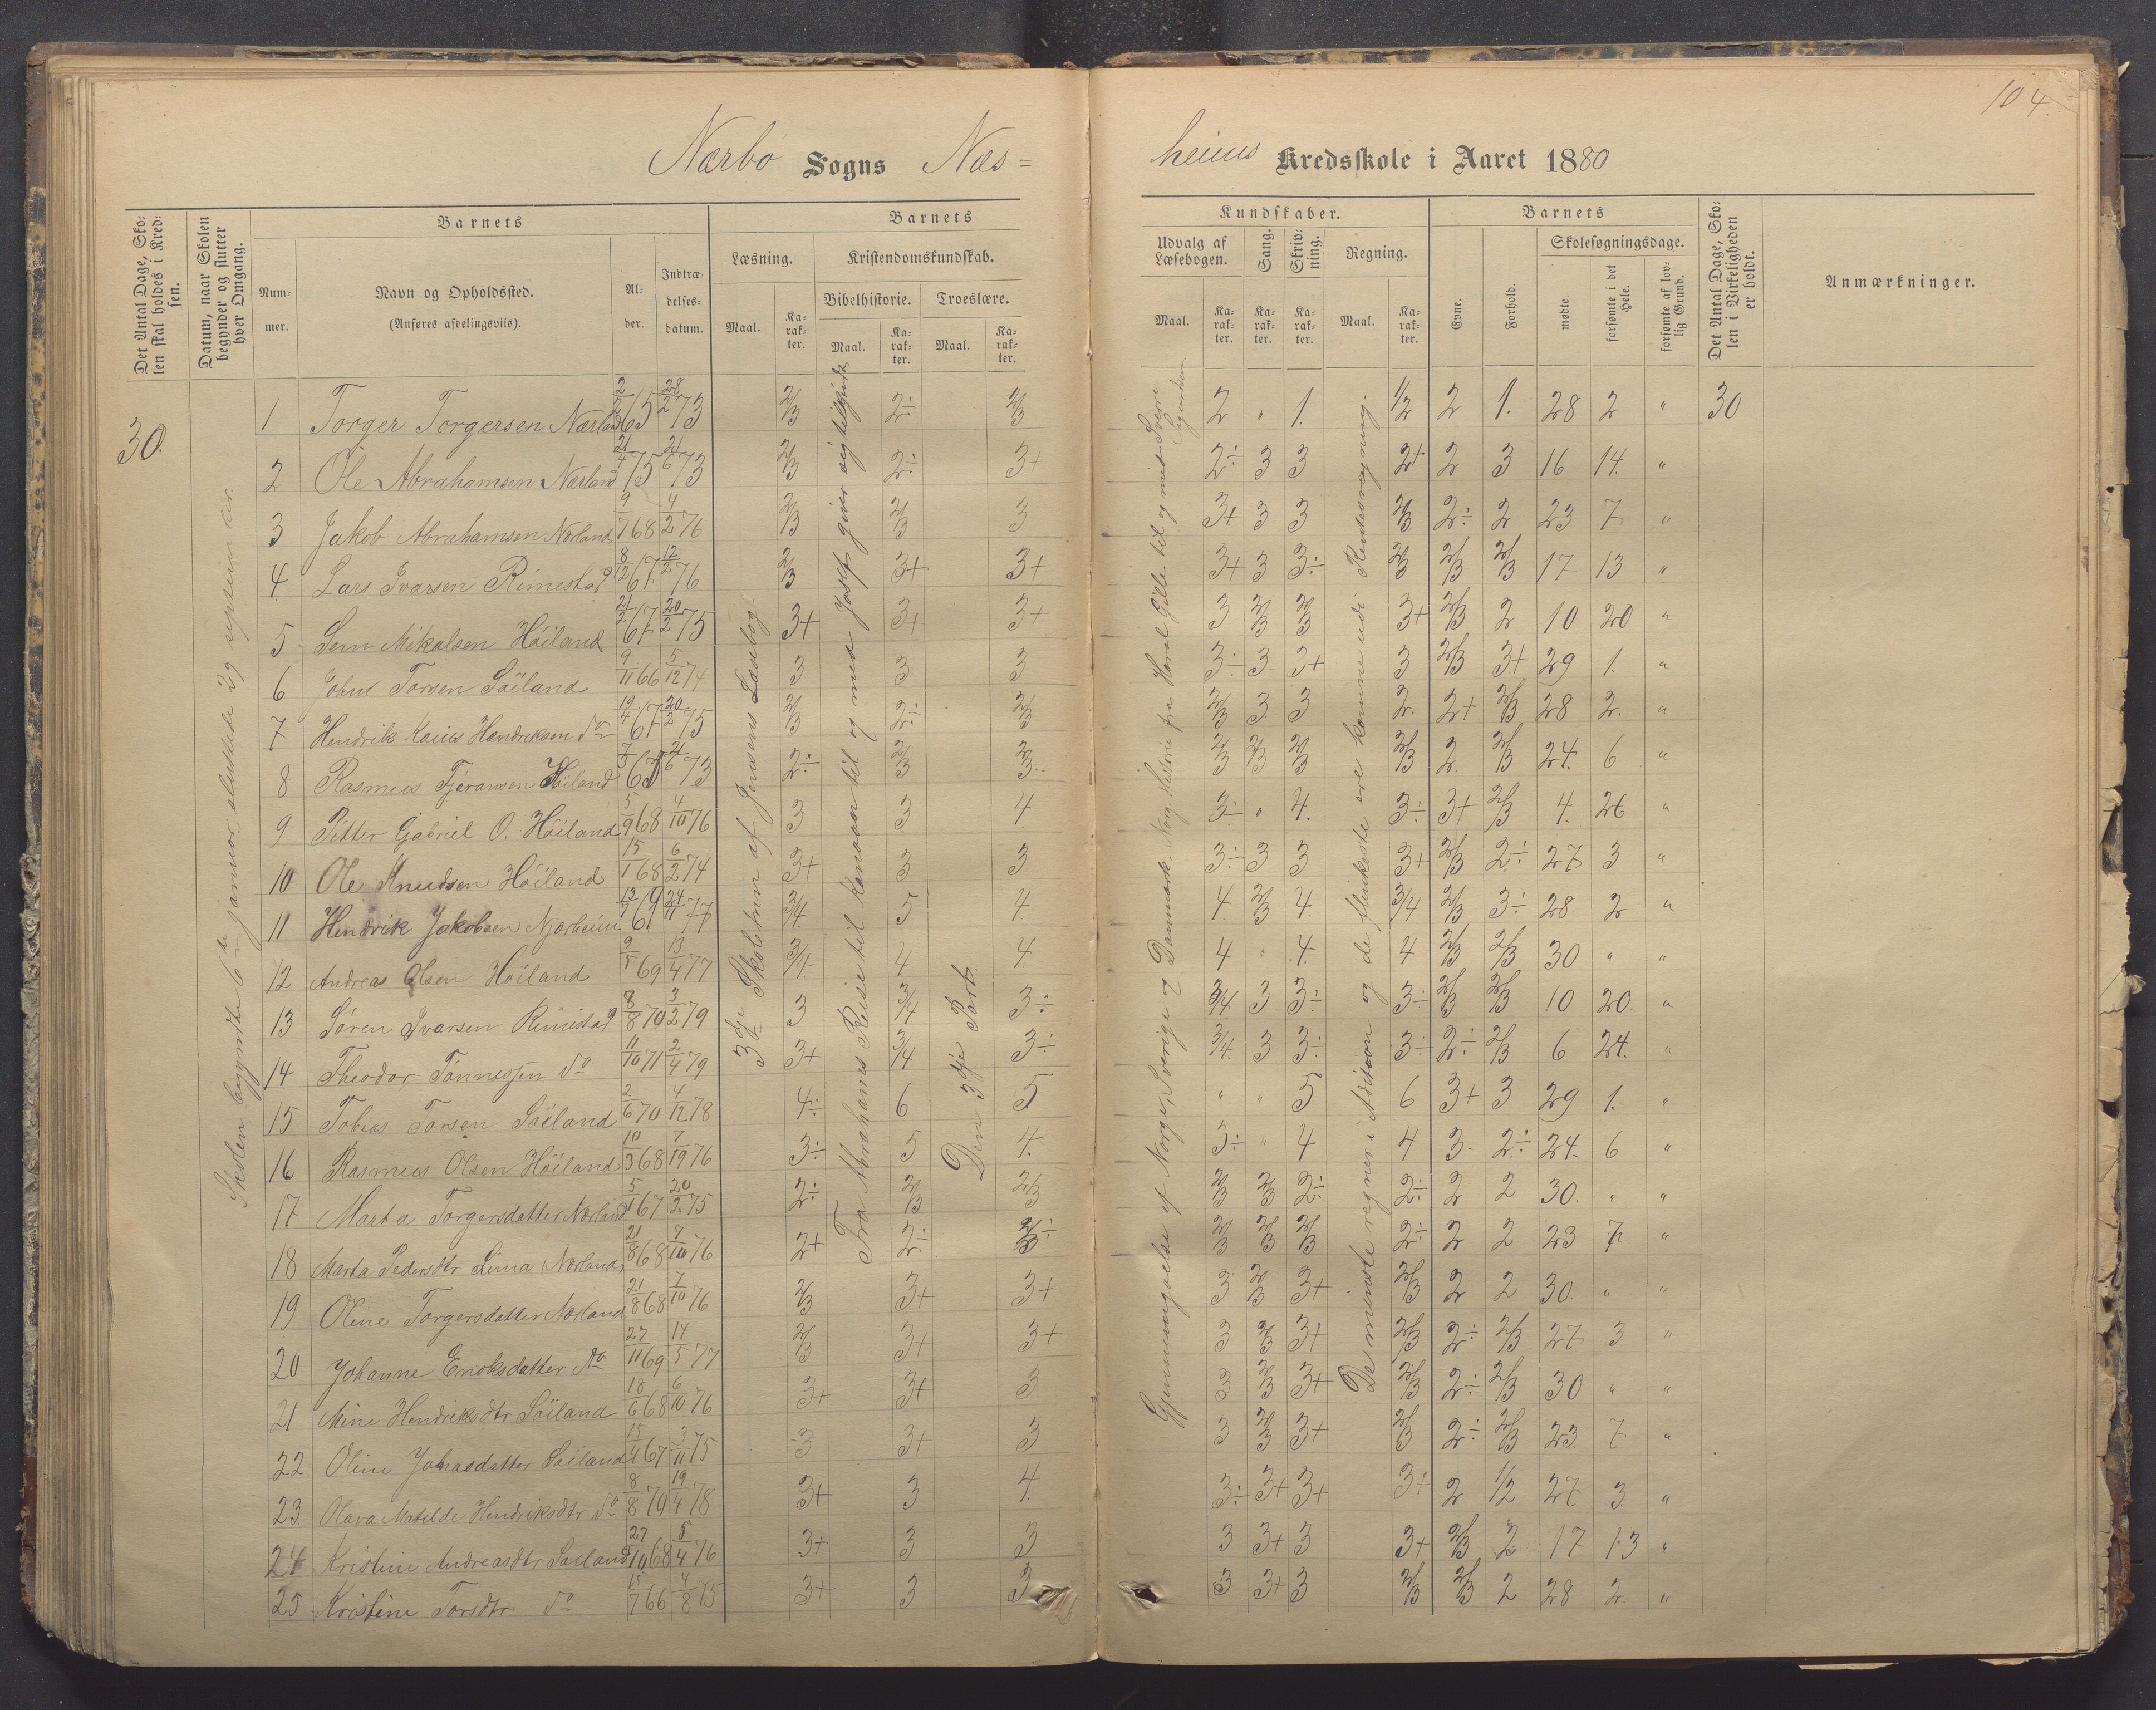 104.
Nærbø Sogns Næs=
heims Kredsskole i Aaret 1880
Det Antal Dage, Sko-
len skal holdes i Kred-
sen.
Datum, naar Skolen
begynder og slutter
hver Omgang.
Barnets
Num-
mer.
Navn og Opholdssted.
(Anføres afdelingsviis).
Al-
der.
Indtræ-
delses-
datum.
Barnets
Læsning.
Kristendomskundskab.
Bibelhistorie.
Troeslære.
Maal.
Ka-
rak-
ter.
Maal.
Ka-
rak-
ter.
Maal.
Ka-
rak-
ter.
Kundskaber.
Udvalg af
Læsebogen.
Sang.
Skriv-
ning.
Regning.
Maal.
Ka-
rak-
ter.
Ka-
rak-
ter.
Ka-
rak-
ter.
Maal.
Ka-
rak-
ter.
Barnets
Evne.
Forhold.
Skolesøgningsdage.
mødte.
forsømte i det
Hele.
forsømte af lov-
lig Grund.
Det Antal Dage, Sko-
len i Virkeligheden
er holdt.
Anmærkninger.
30.
Skolen begyndte 6te januar, sluttede 29
3dje Skoletrin af Jensens Læsebog.
Fra Abrahams Reise til Kanaan til og med Josef giver sig tilkjende
Den 3dje Part.
Gjennemgaaelse af Norge, Sverige og Danmark. Norg. Historie fra Haral Gille til og med Sverre
Sigurdsøn
De mindste regner i Addition og de flinkeste ere komne udi Rentesregning.
1 Torger Torgersen Nærland 2/2 65 28/2 73 2/3 2÷ 2/3 2 " 1. 1/2 2 1. 28 2 " 30
2 Ole Abrahamsen Nærland 21/4 75 21/6 73 2/3 2÷ 3+ 2÷ 3 3 2+ 2 3 16 14. "
3 Jakob Abrahamsen Nærland 9/1 68 4/2 76 2/3 2/3 3 3+ 3 3 2/3 2÷ 2 23 7 "
4. Lars Ivarsen Rimestad 8/12 67 12/2 76 2/3 3+ 3+ 3+ 3 3÷ 2/3 2/3 2/3 17 13 "
5 Sem Mikalsen Höiland 21/2 67 20/2 75 3+ 3+ 3+ 3 2/3 2/3 3+ 2/3 2 10 20 "
6 John Torsen Söiland 9/11 66 5/12 74 3 3 3 3÷ 3 3+ 3 2/3 3+ 29 1. "
7 Hendrik Kaius Hendriksen do 19/4 67 20/2 75 2/3 2÷ 2/3 2/3 3 3 2. 2+ 2/3 28 2. "
8 Rasmus Tjeransen Höiland 7/3 65 21/6 73 2÷ 2/3 2/3 2/3 2/3 2/3 2/3 2 2/3 24. 6 "
9 Pitter Gabriel O. Höiland 5/9 68 4/10 76 3 3 4 3÷ " 4. 3÷ 3+ 2/3 4. 26 "
10 Ole Knudsen Höiland 15/1 68 6/2 74 3+ 3 3 3÷ 3 3 3+ 2/3 2÷ 27 3 "
11 Hendrik Jakobsen Njærheim 13/7 69 24/11 77 3/4. 3 4 4. 2/3 4. 3/4 2/3 3÷ 28 2 "
12 Andreas Olsen Höiland 9/1 69 13/4 77 3/4. 4 4. 4 " 4. 4 2/3 2/3 30 " "
13 Sören Ivarsen Rimestad 8/8 70 3/2 79 3 3/4 3÷ 3/4. 3 3÷ 3÷ 2/3 2/3 10 20. "
14 Theodor Tönnessen do 11/10 71 2/4 79 3+ 3/4 3÷ 3/4. 3 3÷ 3÷ 2÷ 2/3 6 24. "
15 Tobias Torsen Söiland 2/6 70 4/12 78 4÷ 6 5 " " 5 6 3+ 3 29 1. "
16 Rasmus Olsen Höiland 10/3 68 7/19 76 3÷ 5 4. 3÷ " 4 4 3 2÷ 24. 6 "
17 Marta Torgersdatter Nærland 5/1 67 20/2 75 2÷ 2/3 2/3 2/3 2/3 2÷ 2÷ 2 2 30. " "
18 Marta Pedersdtr Lima Nærland 21/8 68 7/10 76 2+ 2÷ 2/3÷ 2/3 2/3 2/3 2÷ 2 2 23 7 "
19 Oline Torgersdatter Nærland 21/8 68 7/10 76 2/3 3+ 3+ 3 2/3 3+ 2/3 2 2 30. " "
20 Johanne Enoksdatter do 27/11 69 14/5 77 2/3 3+ 3+ 3 2/3 3+ 2/3 2÷ 2/3 27 3 "
21 Mine Hendriksdtr Söiland 18/6 68 6/10 76 3+ 3+ 3 3 2/3 3+ 2/3 2÷ 2/3 30 " "
22 Oline Jonasdatter Söiland 15/4 67 3/11 75 3 3+ 3 3 2/3 3+ 2/3 2÷ 2/3 23. 7 "
23 Olava Matilde Hendriksdtr do 8/8 70 19/4 78 3+ 3 4. 3÷ 3+ 3+ 3÷ 2 1/2 27 3. "
24 Kristine Andreasdtr Söiland 27/10 68 5/4 76 3+ 3 3 3 3+ 3 3+ 2/3 2 17 13 "
25 Kristine Torsdtr do 15/7 66 4/8 75 3+ 3 3 3 3+ 3 2/3 2/3 2 28 2. "